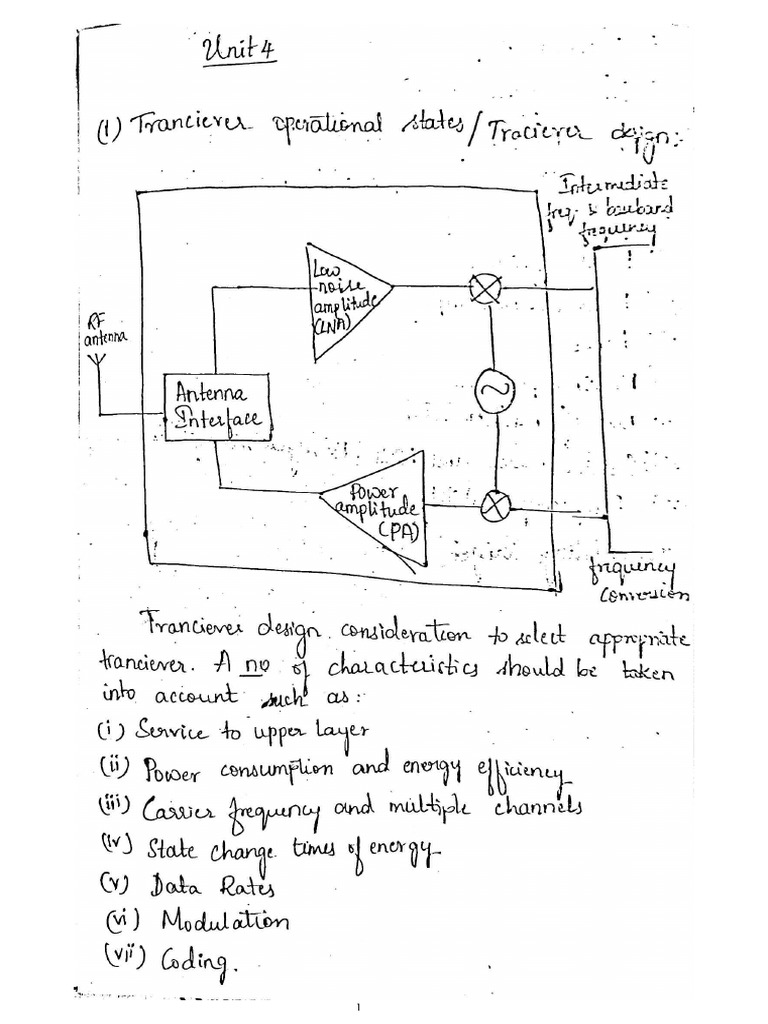 Unit 4
(1) Tranciever operational states / Traciever design:-
Intermediate
freq. & baseband
frequency
Low
noise
amplitude
(LNA)
RF
antenna
Antenna
Interface
Power
amplitude
(PA)
frequency
Conversion
Tranciever design consideration to select appropriate
tranciever. A no of characteristics should be taken
into account such as:
(i) Service to upper layer
(ii) Power consumption and energy efficiency
(iii) Carrier frequency and multiple channels
(iv) State change times of energy
(v) Data Rates
(vi) Modulation
(vii) Coding.
1